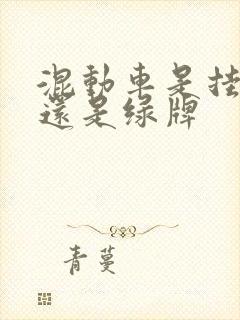 混動車是挂
還是绿牌
青蔓